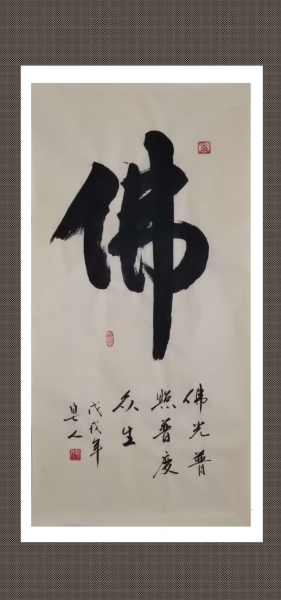 佛
佛光普
照普度
众生
戊戌年